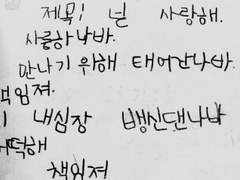 제목: 넌 사랑해.
사률하나바.
만나기 위해 태어난나바.
책임져.
내심장 뱅신댄나나
떡해
책임져